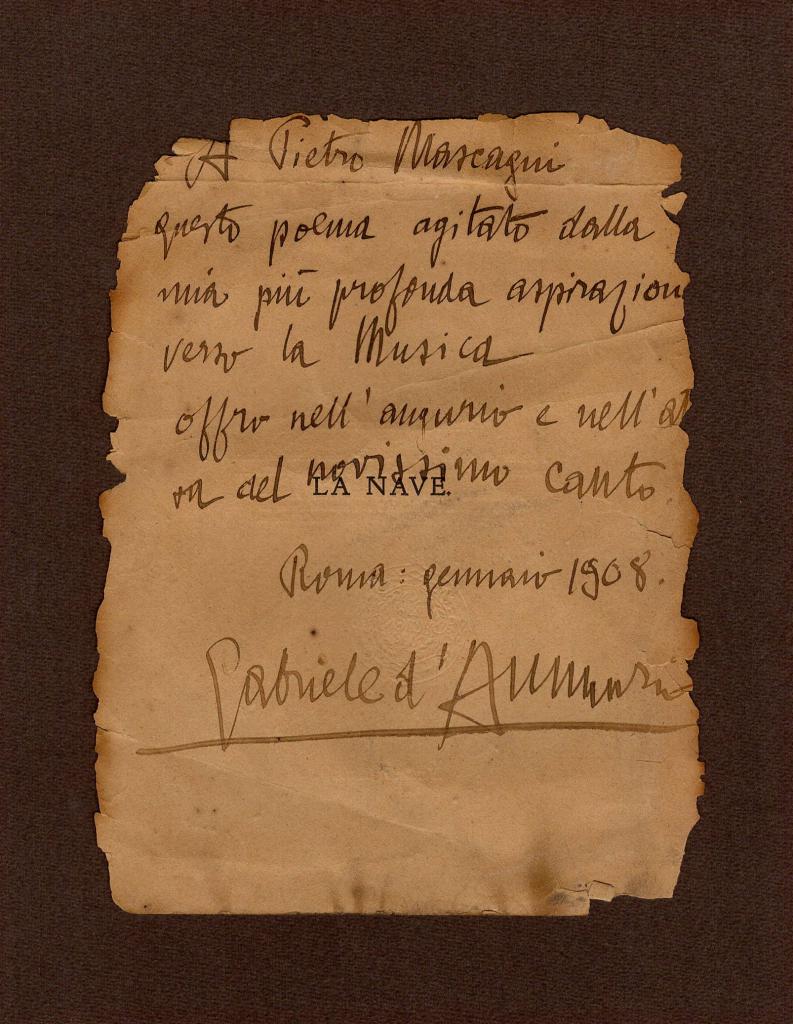 A Pietro Mascagni
questo poema agitato dalla
mia più profonda aspirazion
verso la Musica
offro nell'augurio e nell'at
sa del novissimo canto.
LA NAVE.
Roma: gennaio 1908.
Gabriele d'Annunzi